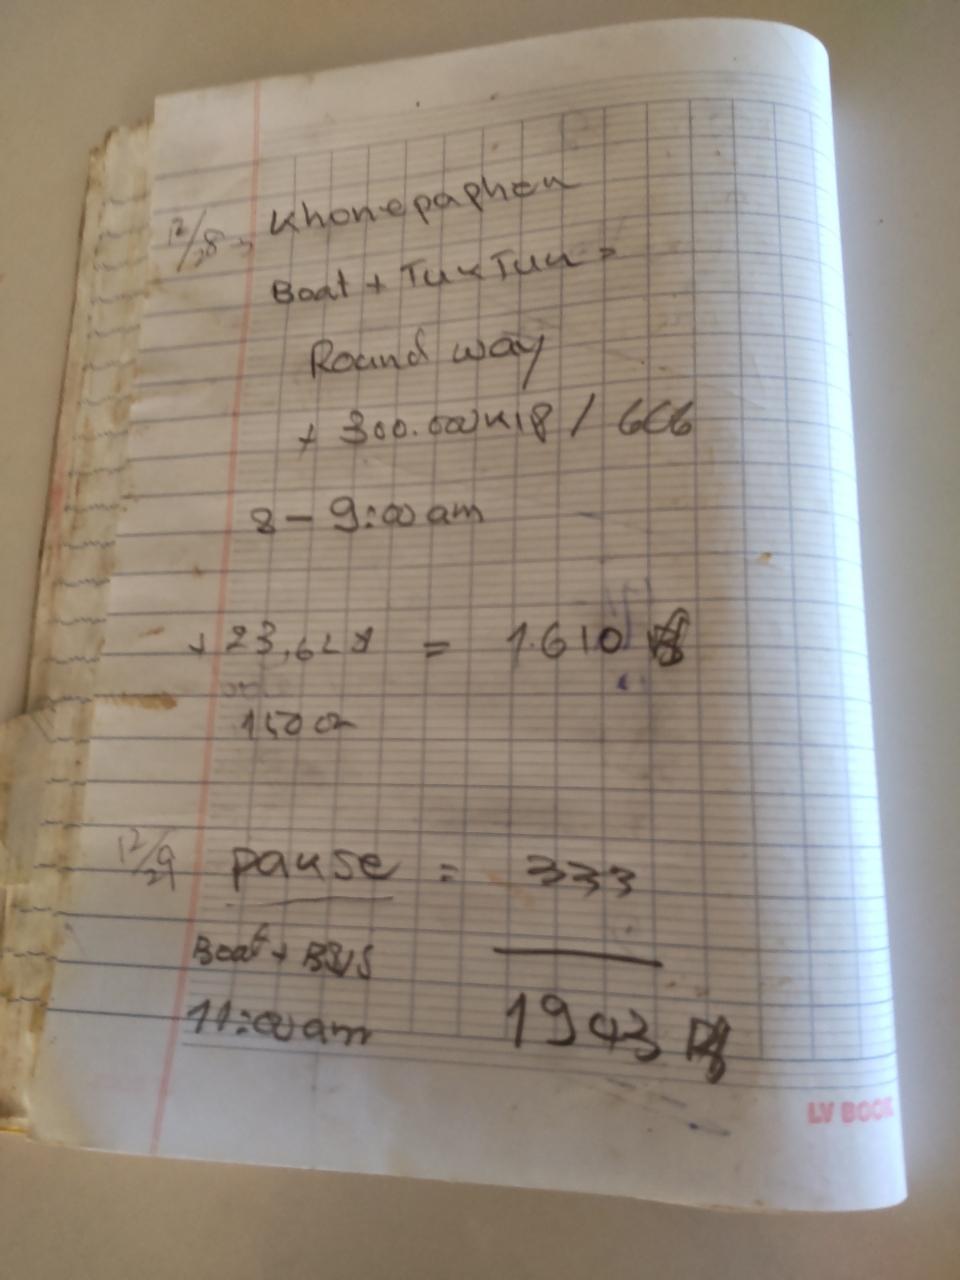 12/28 Khonepaphen
Boat + TukTuk =
Round way
+ 300.000 KIP / 666
8 - 9:00 am
= 1.610
1500
12/29 pakse = 333
Boat + BUS
11:00 am 1943
LV BOOK